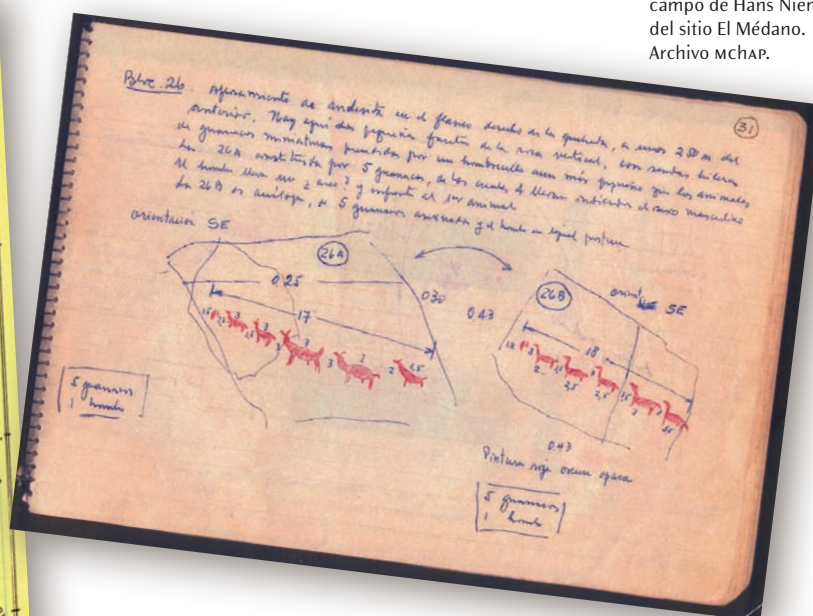 campo de Hans Nie
del sitio El Médano.
Archivo MCHAP.
31
Bloc. 26. Afloramiento de andesita en el flanco derecho de la quebrada, a unos 280 m del
anterior. Hay aquí dos pequeñas de la roca vertical, con sendas hileras
de guanacos miniaturas por un hombrecillo aun más pequeño que los animales
La 26A constituida por 5 guanacos, de los cuales 4 llevan indicados el sexo masculino
El hombre lleva un ? y al 1er animal
La 26B es análoga, 5 guanacos y el hombre en igual postura
orientación SE
26A
0.25
030
0.43
17
26B
SE
18
5 guanacos
1 hombre
0.43
Pintura roja oscura opaca
5 guanacos
1 hombre